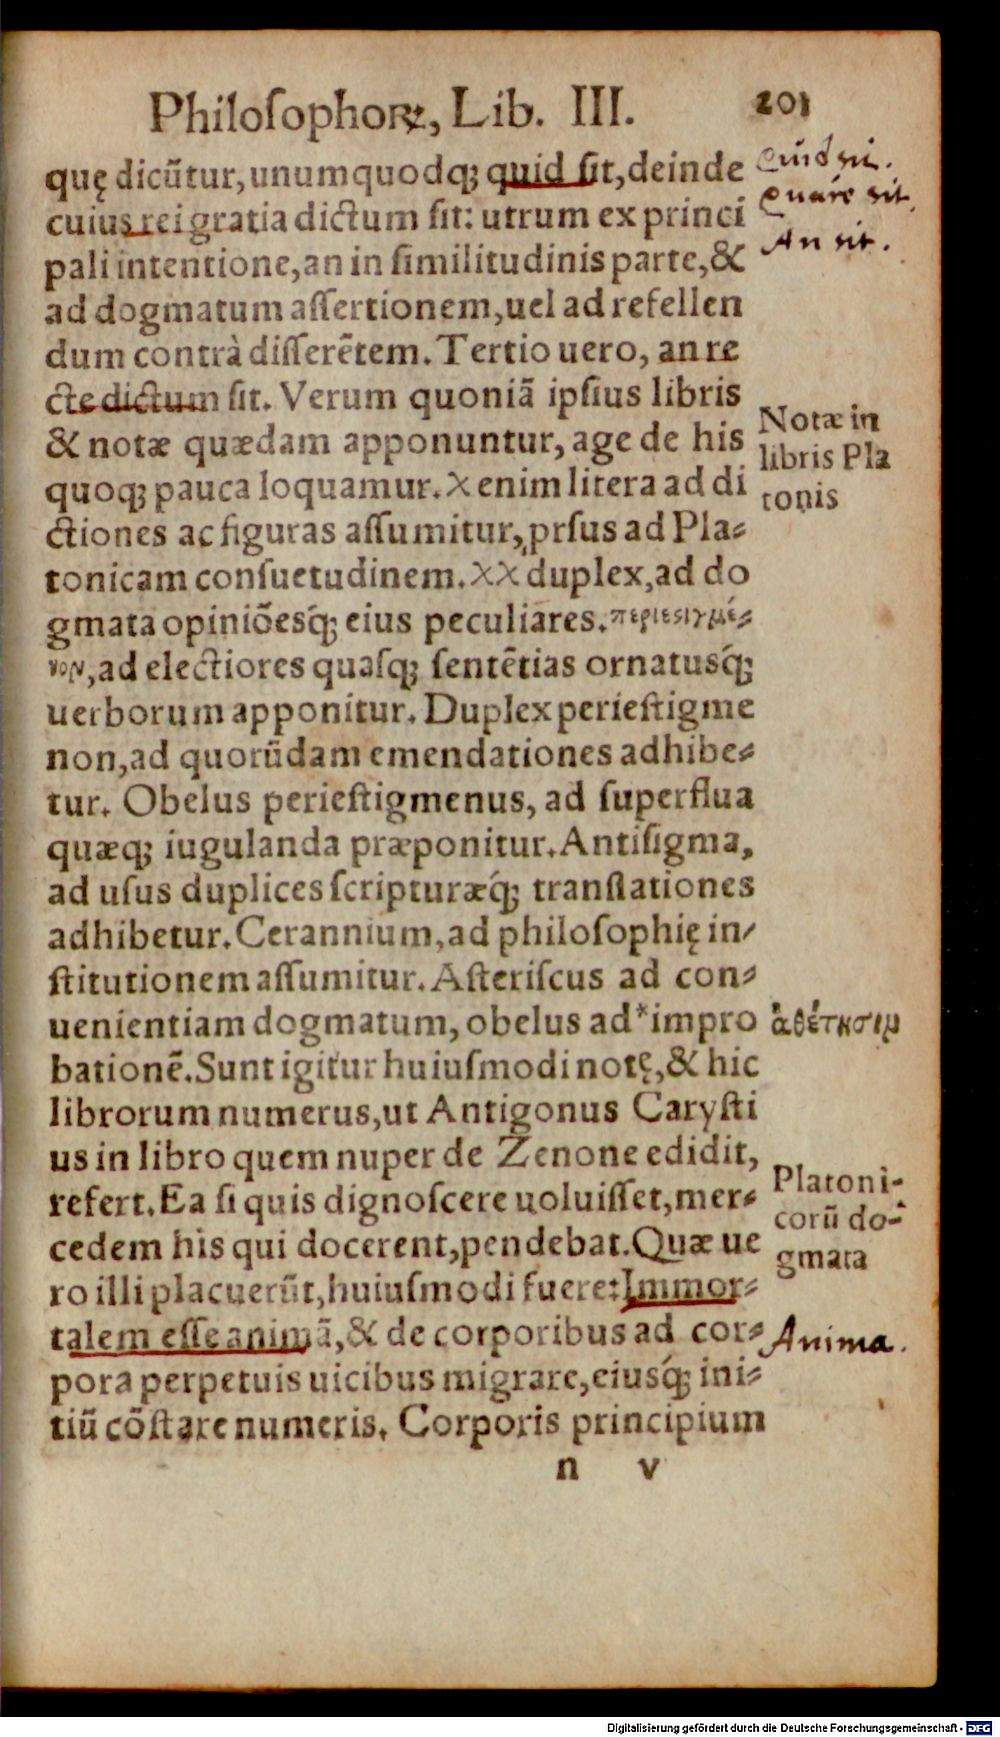 Philosophoꝝ, Lib. III. 201
quę dicũtur, unumquodq; quid ſit, deinde
cuius rei gratia dictum ſit: utrum ex princi
pali intentione, an in ſimilitudinis parte, &
ad dogmatum aſſertionem, uel ad refellen
dum contrà differẽtem. Tertio uero, an re
cte dictum ſit. Verum quoniã ipſius libris
& notæ quædam apponuntur, age de his
quoq; pauca loquamur. X enim litera ad di
ctiones ac figuras aſſumitur, ꝓrſus ad Pla⸗
tonicam conſuetudinem. XX duplex, ad do
gmata opiniõesq́; eius peculiares. περιεσιγμέ⸗
νον, ad electiores quaſq; ſentẽtias ornatusq́;
uerborum apponitur. Duplex perieſtigme
non, ad quorũdam emendationes adhibe⸗
tur. Obelus perieſtigmenus, ad ſuperflua
quæq; iugulanda præponitur. Antiſigma,
ad uſus duplices ſcripturæq́; tranſlationes
adhibetur. Cerannium, ad philoſophię in⸗
ſtitutionem aſſumitur. Aſteriſcus ad con⸗
uenientiam dogmatum, obelus ad * impro
bationẽ. Sunt igitur huiuſmodi notę, & hic
librorum numerus, ut Antigonus Caryſti
us in libro quem nuper de Zenone edidit,
refert. Ea ſi quis dignoſcere uoluiſſet, mer⸗
cedem his qui docerent, pendebat. Quæ ue
ro illi placuerũt, huiuſmodi fuere: Immor⸗
talem eſſe animã, & de corporibus ad cor⸗
pora perpetuis uicibus migrare, eiusq́; ini⸗
tiũ cõſtare numeris. Corporis principium
n v
Quid sit.
Quare sit.
An sit.
Notæ in
libris Pla
tonis
ἀθέτησιμ
Platoni-
corũ do-
gmata
Anima.
Digitalisierung gefördert durch die Deutsche Forschungsgemeinschaft - DFG